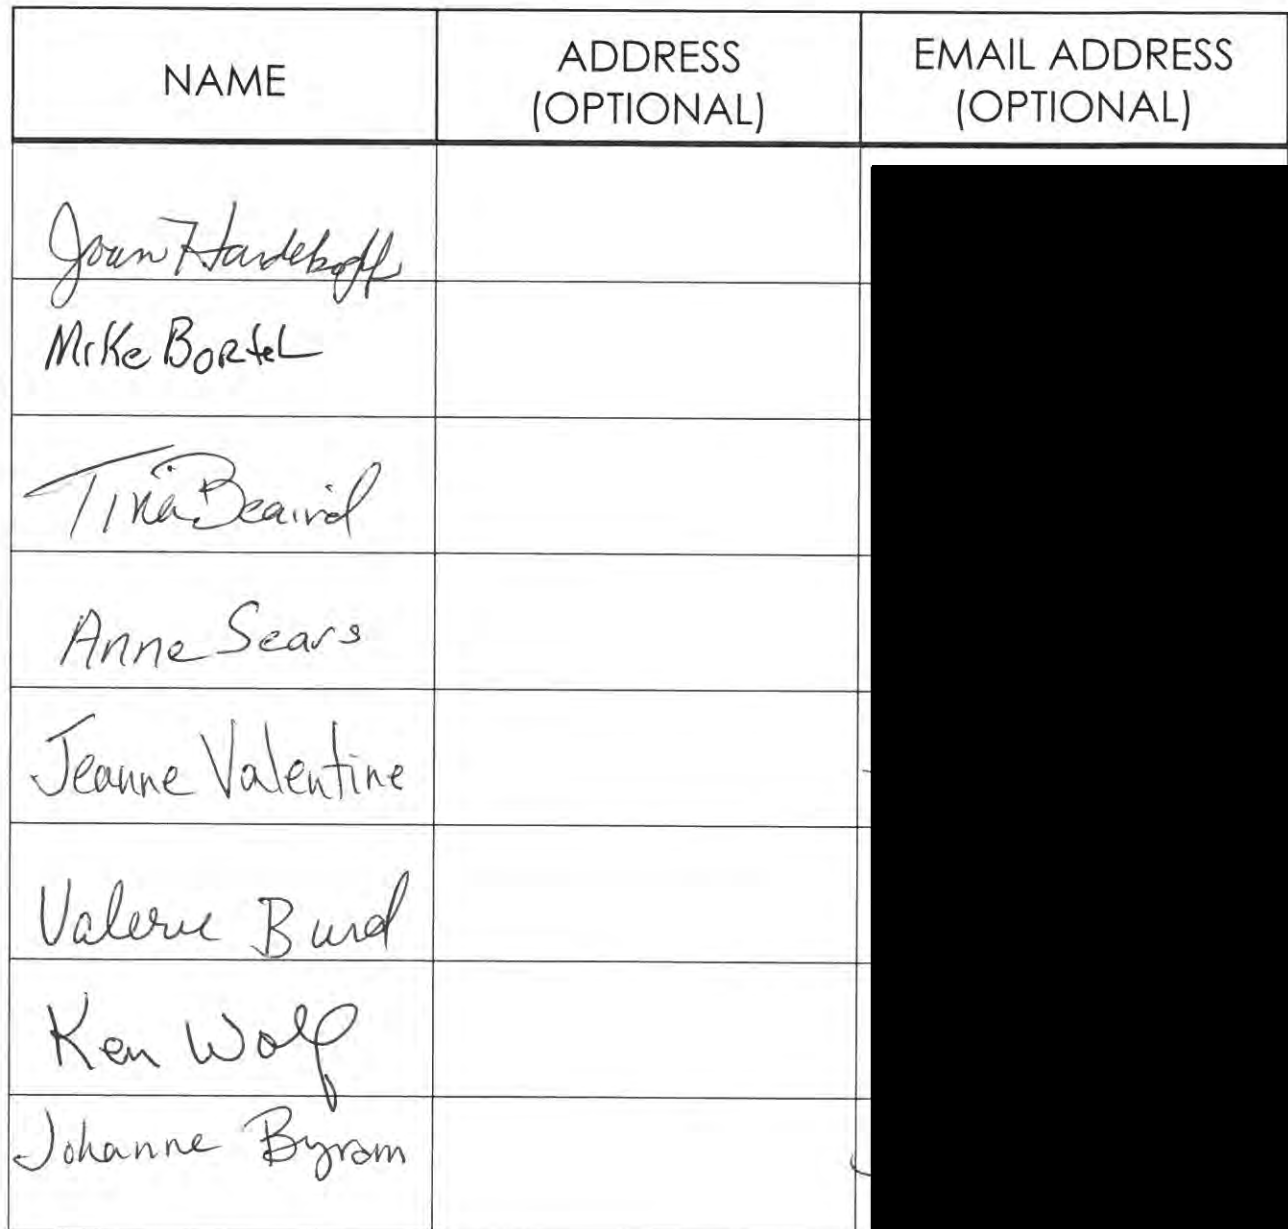 NAME
ADDRESS
(OPTIONAL)
EMAIL ADDRESS
(OPTIONAL)
Joan Hardekopf
Mike Bortel
Tina Beaird
Anne Sears
Jeanne Valentine
Valerie Burd
Ken Wolf
Johanne Byram